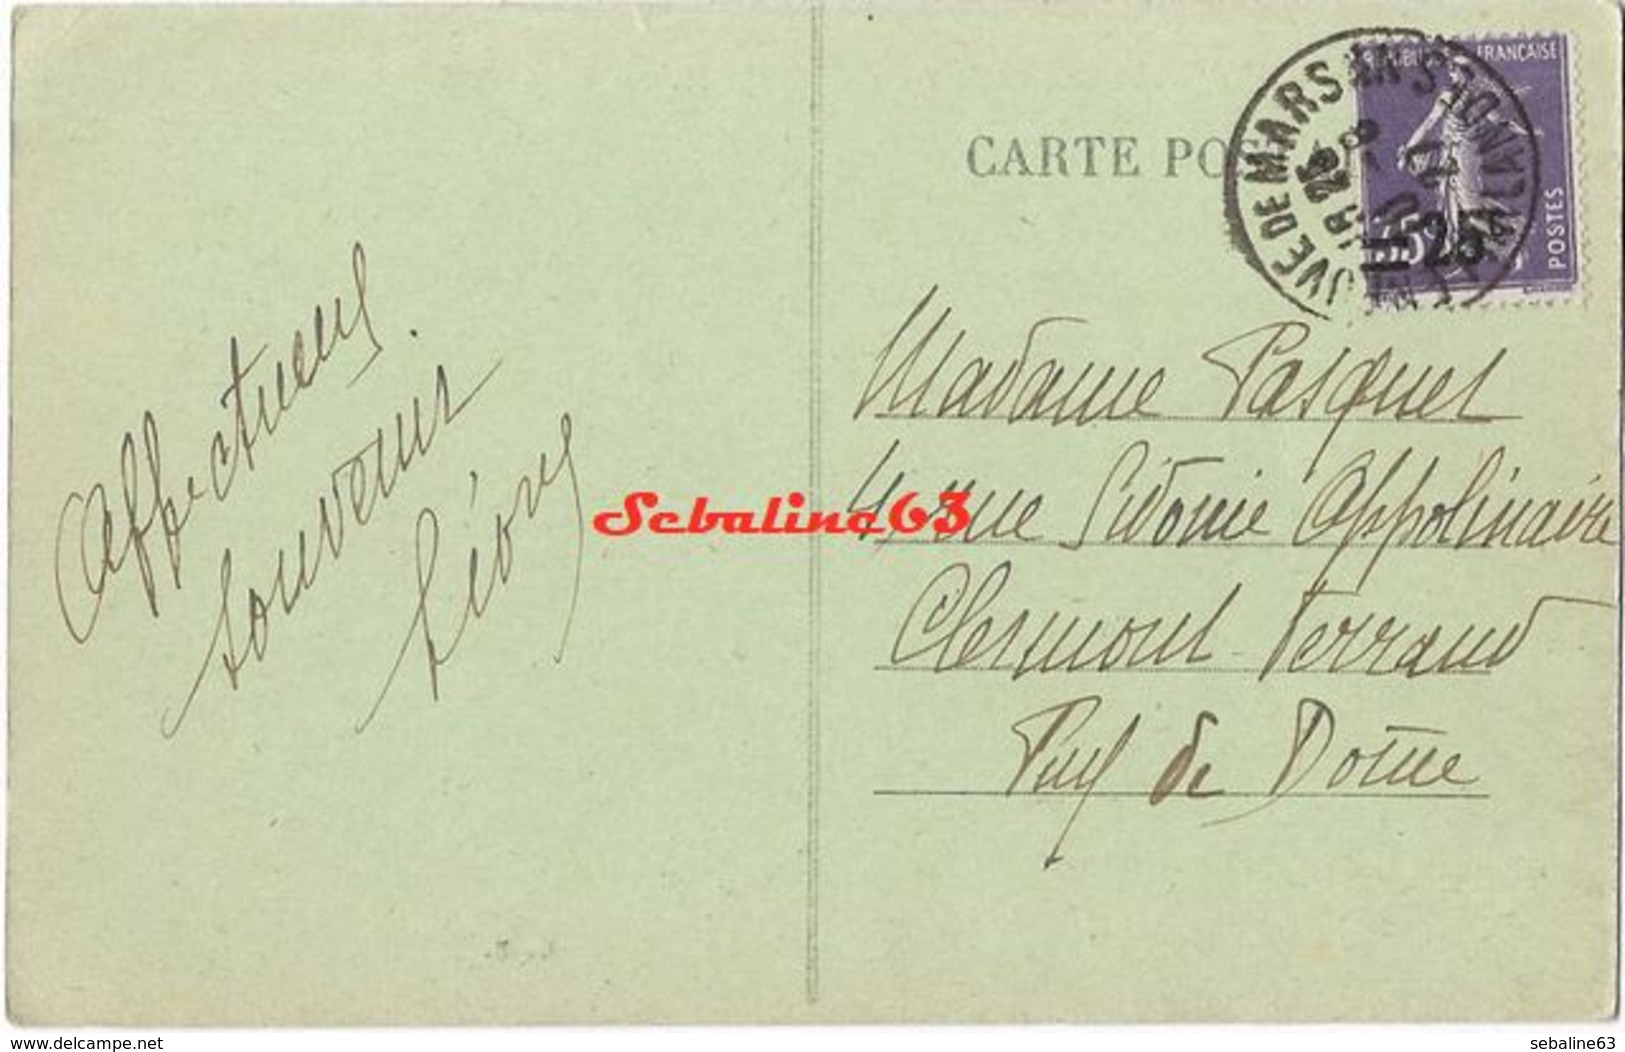 CARTE PO
RÉPUBLIQUE FRANÇAISE
POSTES
=25ᶜ
Affectueux
souvenir
Léony
Sebaline63
Madame Pasquet
4, rue Sidonie Appolinaire
Clermont-Ferrand
Puy de Dôme
www.delcampe.net
sebaline63